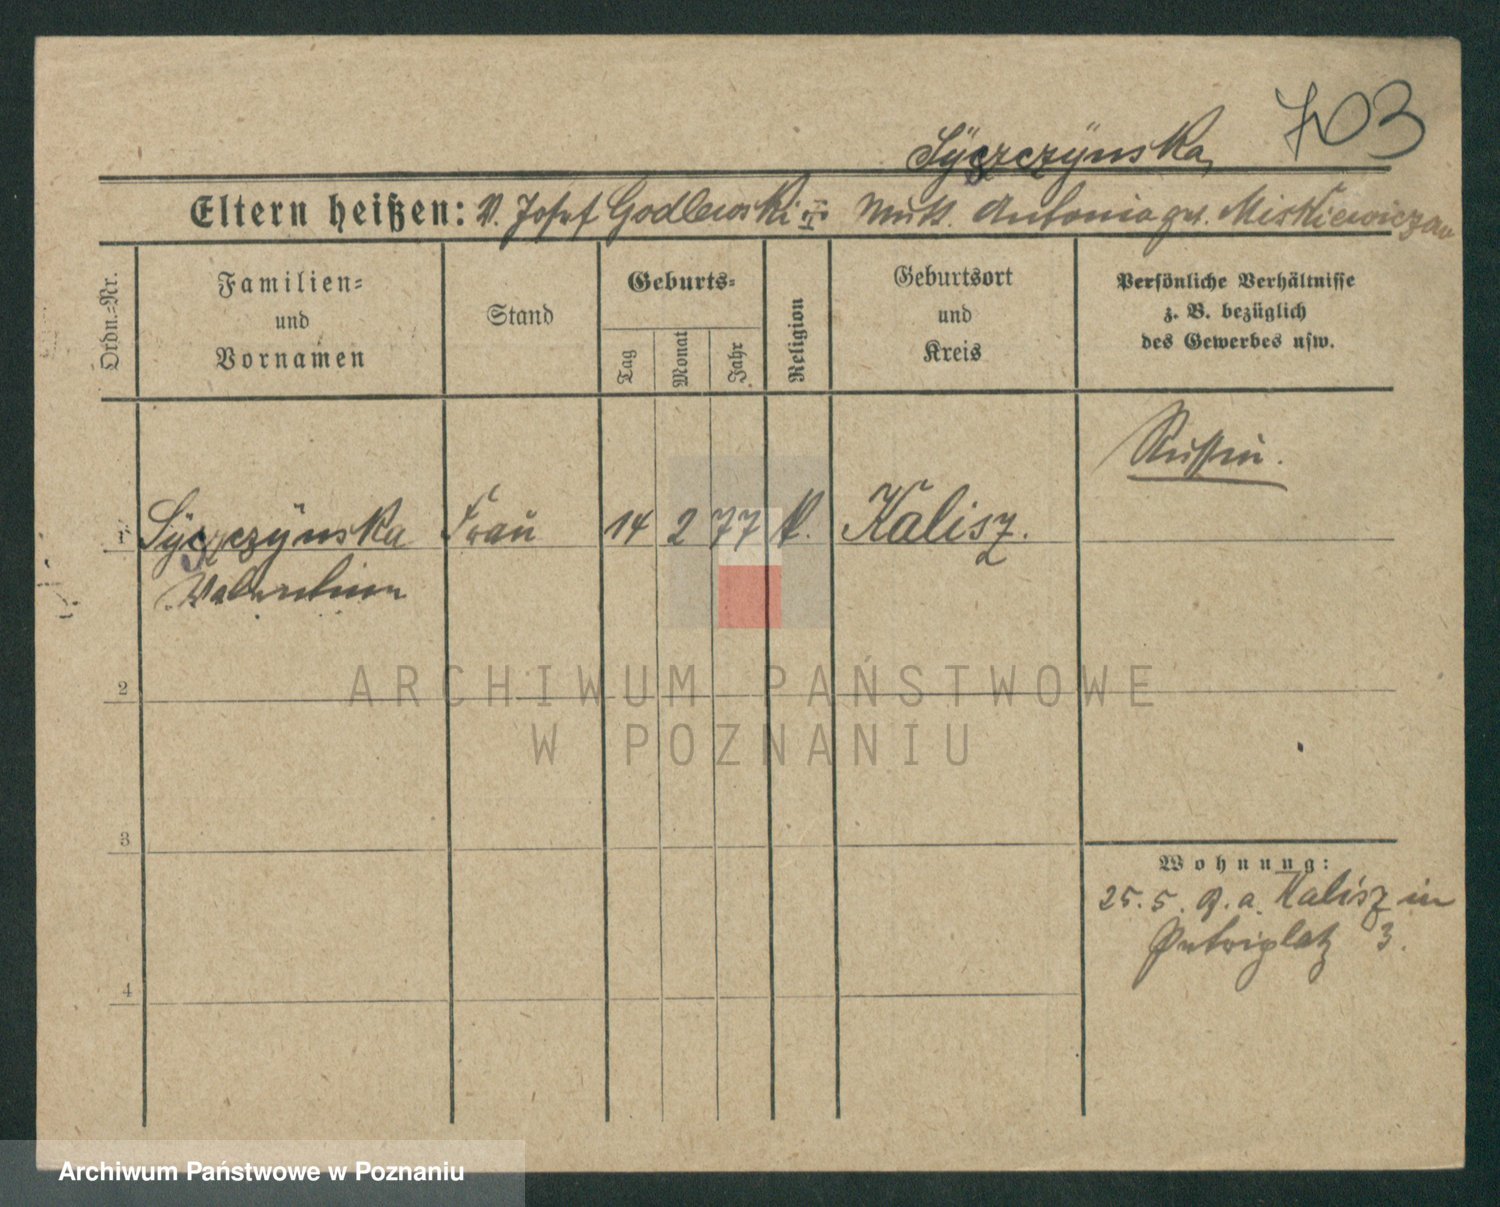 703
Syszczÿnska
Eltern heißen: V. Josef Godlewski Mutt. Antonia geb. Miskiewiczow
Ordn.-Nr.
Familien-
und
Vornamen
Stand
Geburts-
Tag
Monat
Jahr
Religion
Geburtsort
und
Kreis
Persönliche Verhältnisse
z. B. bezüglich
des Gewerbes usw.
Russin.
1 Syszczÿnska Frau 14 2 77 k. Kalisz.
Valentina
2
ARCHIWUM PAŃSTWOWE
W POZNANIU
3
Wohnung:
25.5. a. Kalisz in
Petriplatz 3.
4
Archiwum Państwowe w Poznaniu